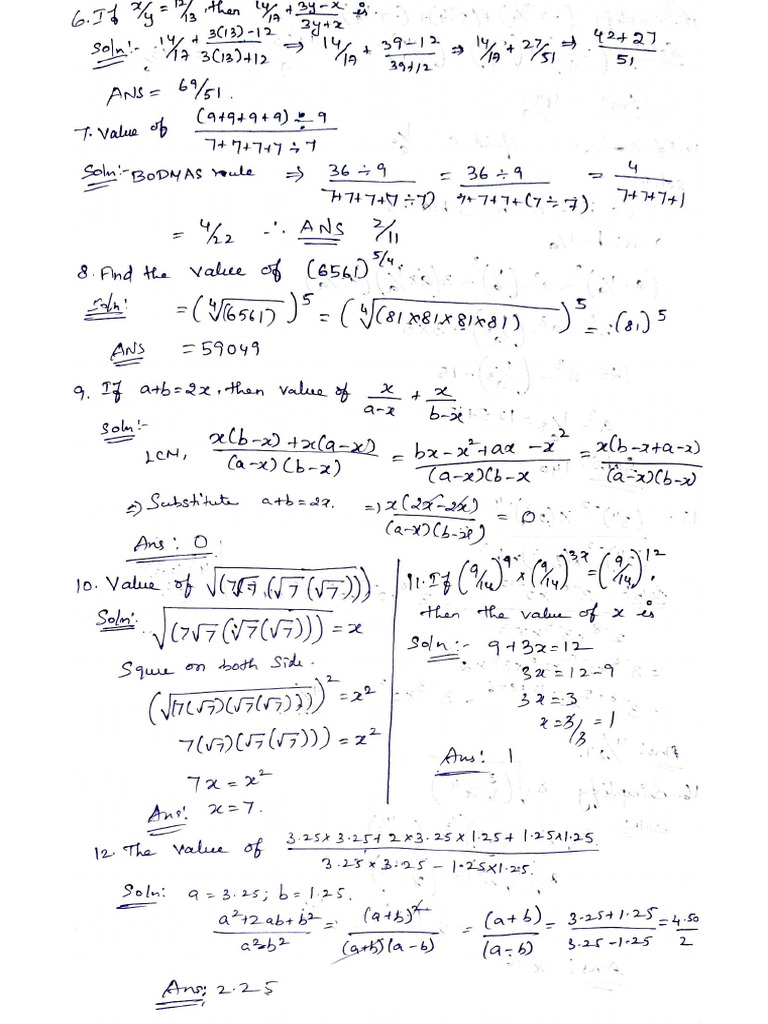 6. If x/y = 12/13, then 14/17 + (3y-x)/(3y+x) is.
Soln:- 14/17 + (3(13)-12)/(3(13)+12) ⇒ 14/17 + (39-12)/(39+12) ⇒ 14/17 + 27/51 ⇒ (42+27)/51
ANS = 69/51.
7. Value of ((9+9+9+9) ÷ 9)/(7+7+7+7÷7)
Soln:- BODMAS rule ⇒ (36÷9)/(7+7+7+7÷7) = (36÷9)/(7+7+7+(7÷7)) = 4/(7+7+7+1)
= 4/22 ∴ ANS 2/11
8. Find the value of (6561)^5/4.
Soln: = (∜(6561))^5 = (∜(81×81×81×81))^5 = (81)^5
ANS = 59049
9. If a+b=2x, then value of x/(a-x) + x/(b-x)
Soln:-
LCM, (x(b-x)+x(a-x))/((a-x)(b-x)) = (bx-x²+ax-x²)/((a-x)(b-x) = x(b-x+a-x)/((a-x)(b-x))
⇒ Substitute a+b=2x. ⇒ x(2x-2x)/((a-x)(b-x)) = 0
Ans: 0
10. Value of √(7√7(√7(√7)))
Soln: √(7√7(√7(√7))) = x
Squre on both side.
(√(7(√7)(√7(√7))))² = x²
7(√7)(√7(√7))) = x²
7x = x²
Ans: x=7.
11. If (9/14)^9 × (9/14)^3x = (9/14)^12,
then the value of x is
Soln:- 9+3x=12
3x=12-9
3x=3
x=3/3=1
Ans: 1
12. The value of (3.25×3.25+2×3.25×1.25+1.25×1.25)/(3.25×3.25-1.25×1.25)
Soln: a=3.25; b=1.25.
(a²+2ab+b²)/(a²-b²) = (a+b)²/((a+b)(a-b)) = (a+b)/(a-b) = (3.25+1.25)/(3.25-1.25) = 4.50/2
Ans: 2.25